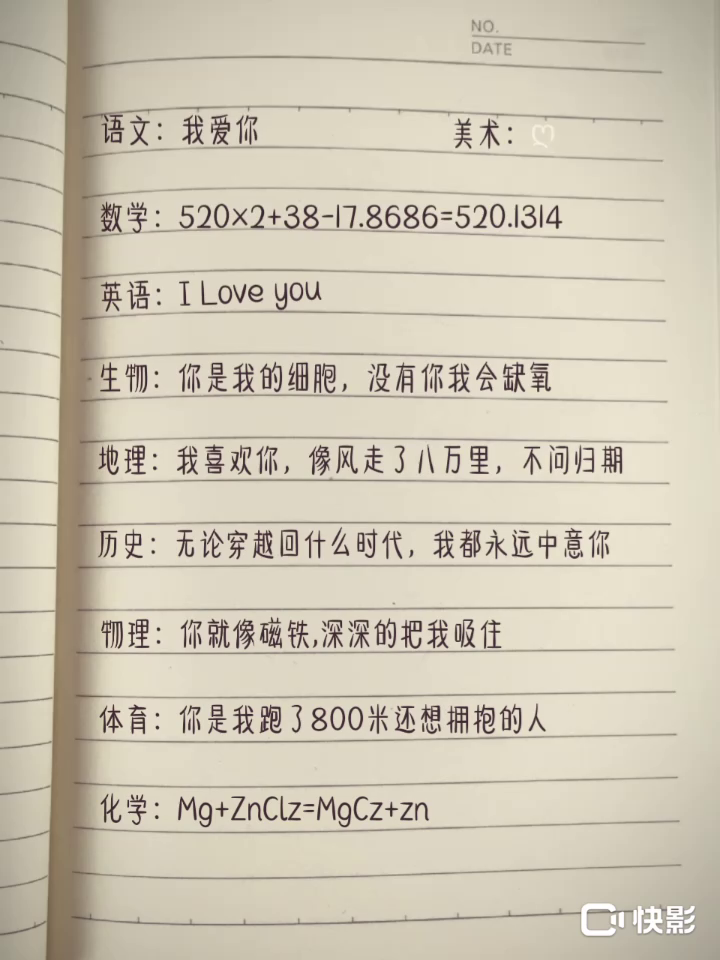 NO.
DATE
语文：我爱你 美术：ღ
数学：520×2+38-17.8686=520.1314
英语：I Love you
生物：你是我的细胞，没有你我会缺氧
地理：我喜欢你，像风走了八万里，不问归期
历史：无论穿越回什么时代，我都永远中意你
物理：你就像磁铁,深深的把我吸住
体育：你是我跑了800米还想拥抱的人
化学：Mg+ZnClz=MgCz+zn
快影